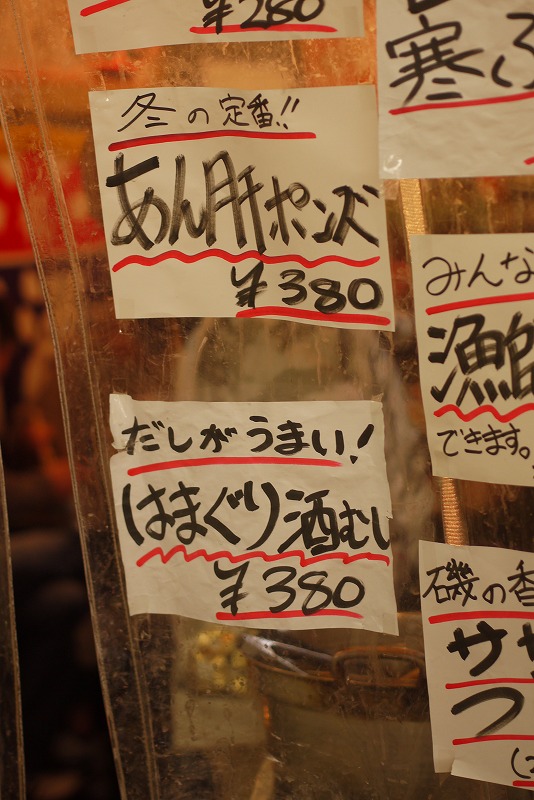 ¥280
冬の定番!!
あん肝ポンズ
¥380
だしがうまい!
はまぐり酒むし
¥380
寒
みんな
できます。
磯の香
サ
つ